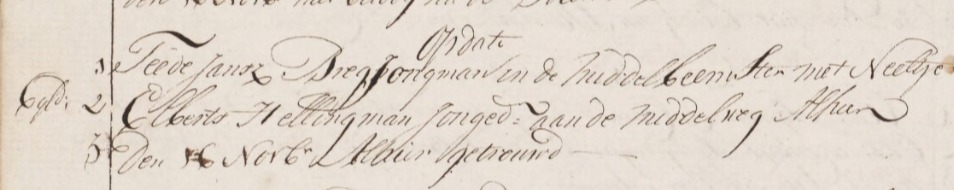 den 16 Novb met
Op dato
1 Teede Jansz Breg Jongman in de Middelbeemster met Neeltje
Gyld: 2 Elberts Hellingman Jonged: aan de Middelweg Alhier
3 Den 16 Novbr Alhier getrouwd